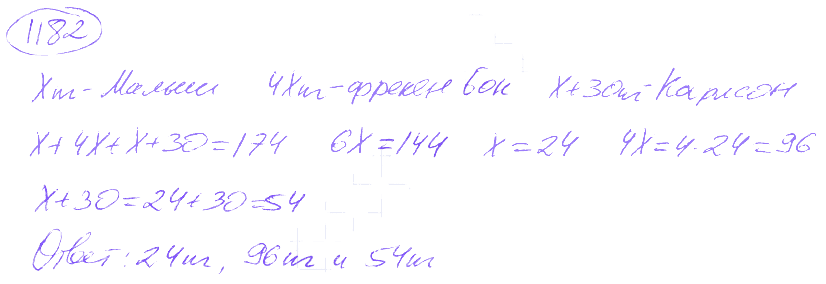 1182
Xш-Малыш 4Xш-фрекен Бок X+30ш-Карлсон
X+4X+X+30=174 6X=144 X=24 4X=4·24=96
X+30=24+30=54
Ответ: 24ш, 96ш и 54ш